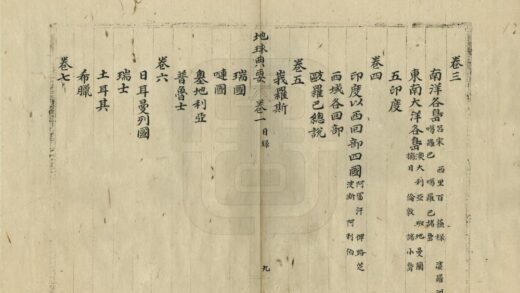 卷三
南洋各島 呂宋 西里百 蘇祿 婆羅洲
噶羅巴 噶羅巴諸島
東南大洋各島 澳大利亞 班地曼蘭
搬日 倫敦 諸小島
五印度
卷四
印度以西回部四國 阿富汗 俾路芝
波斯 阿利伯
西域各回部
歐羅巴總說
卷五
峩羅斯
地球典要 卷一 目錄 九
瑞國
嗹國
奧地利亞
普魯士
卷六
日耳曼列國
瑞士
土耳其
希臘
卷七